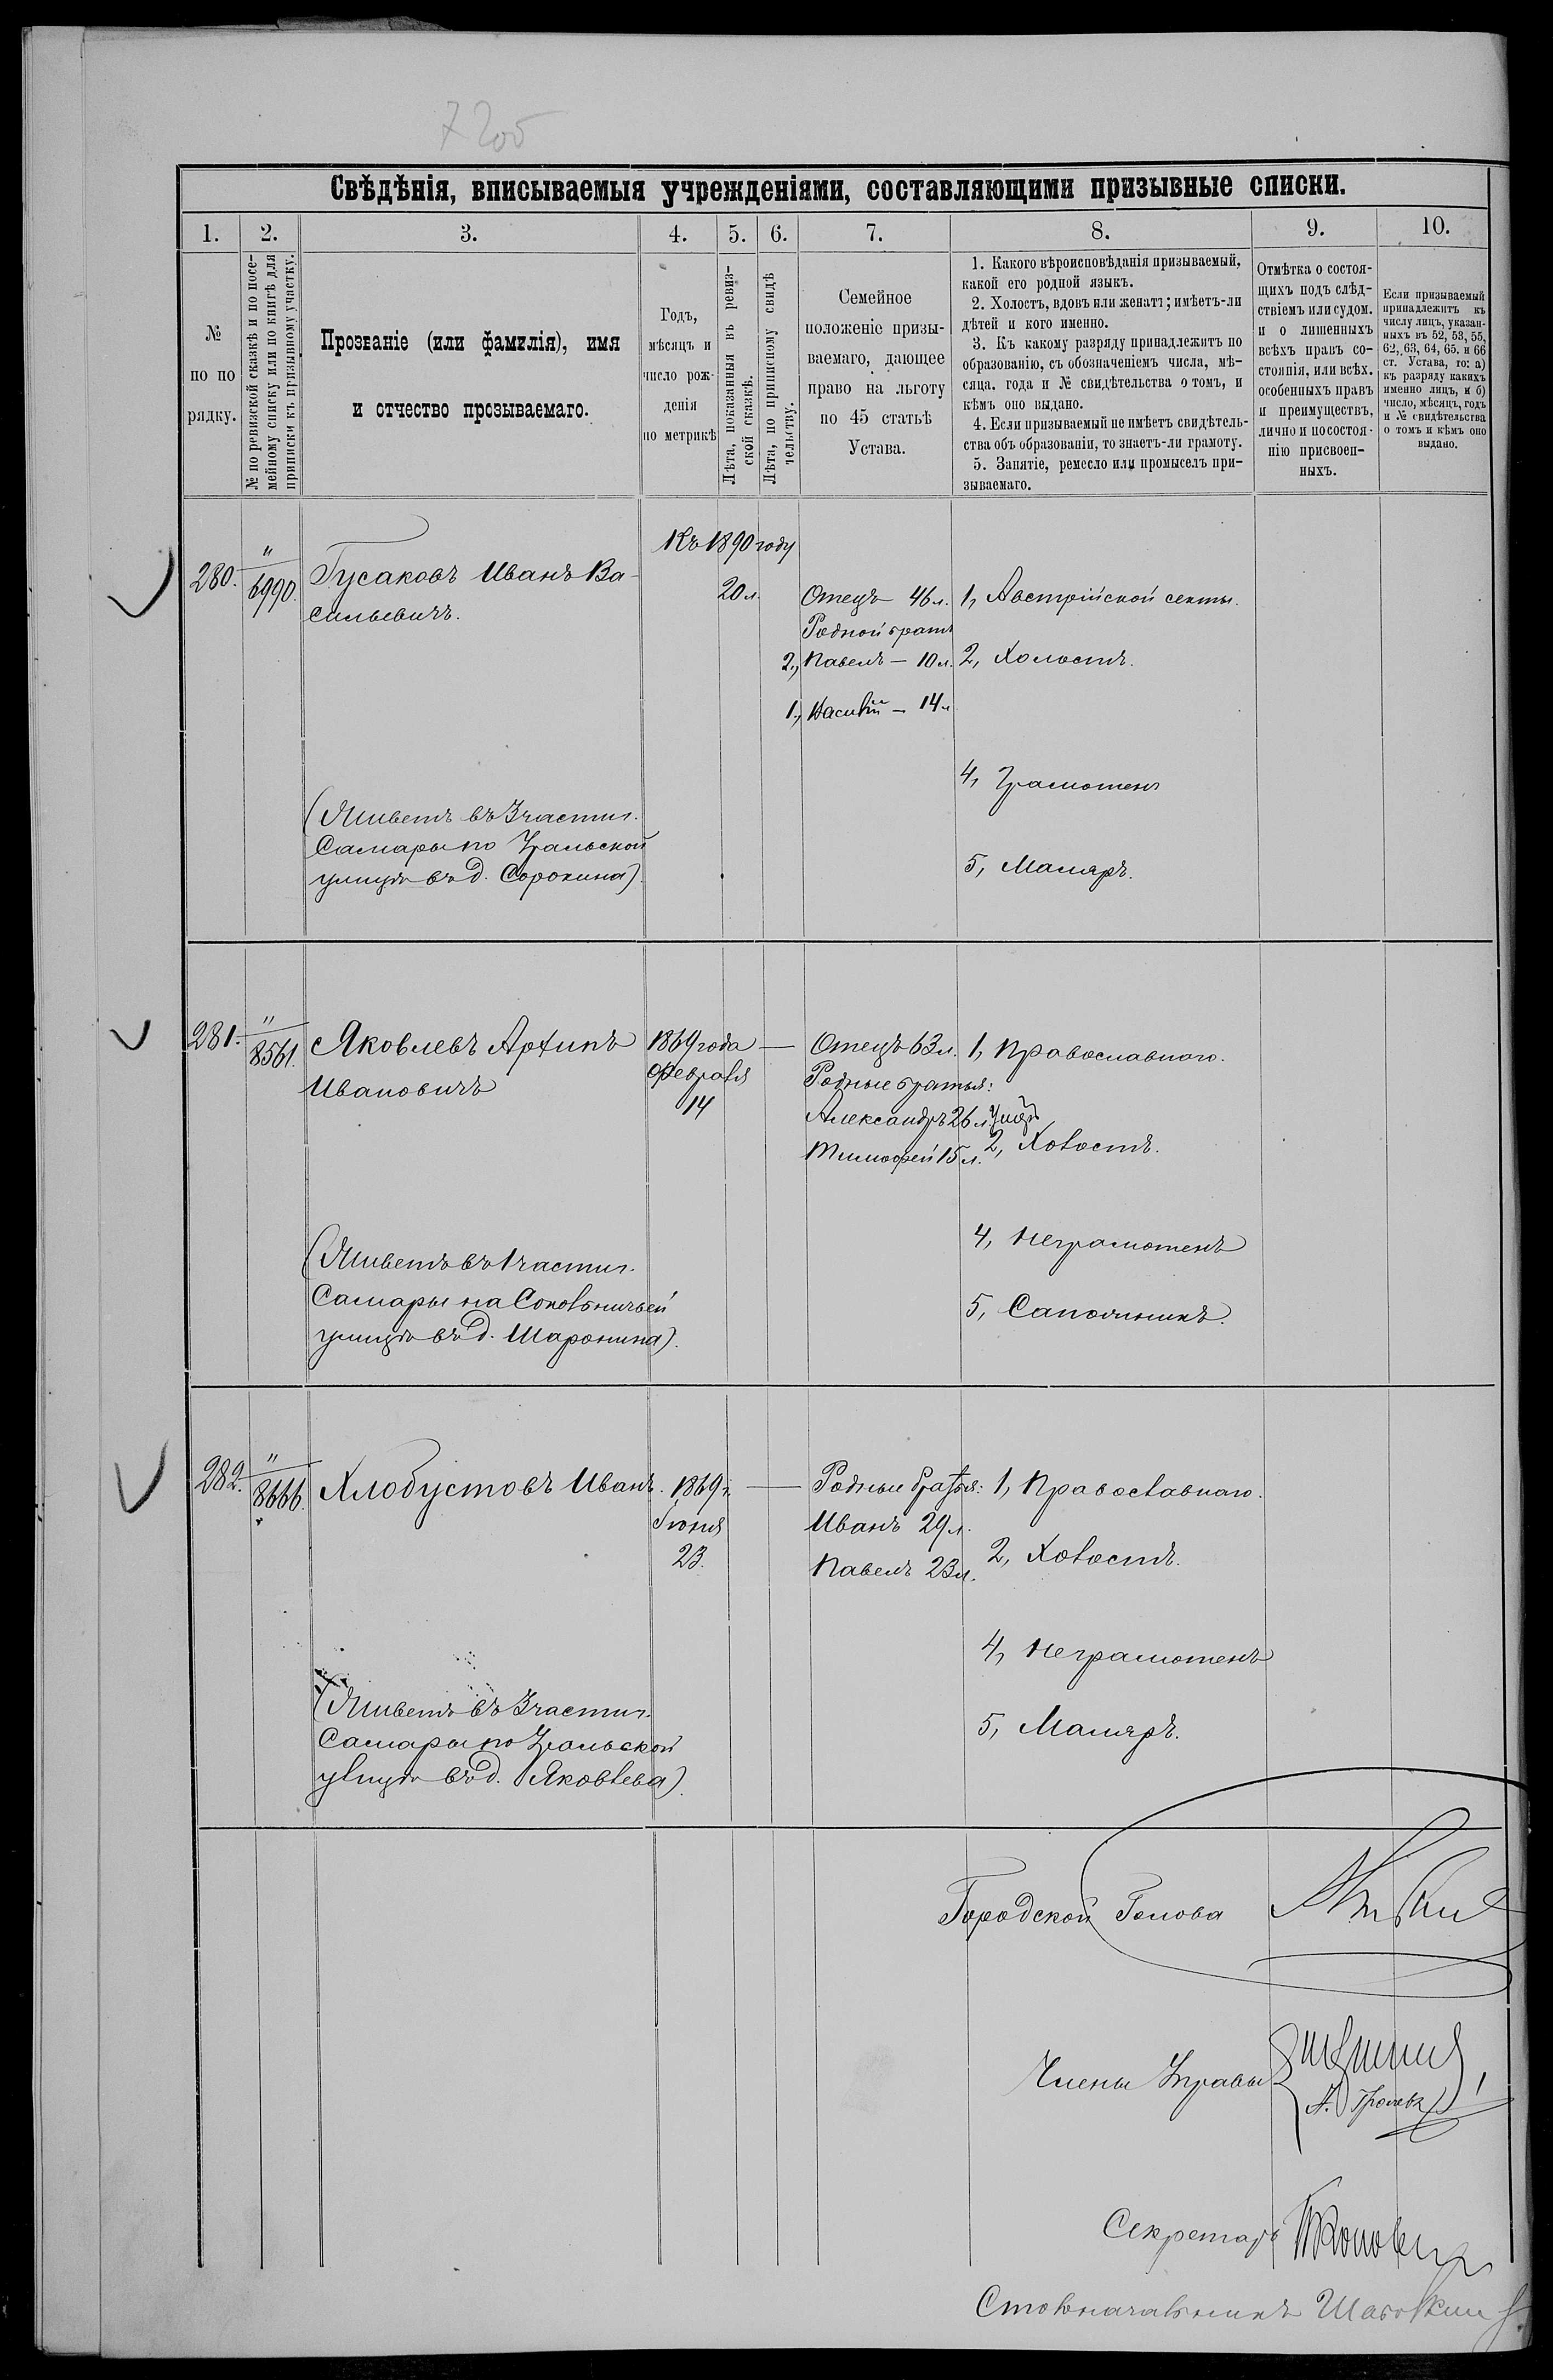 7205
Свѣдѣнія, вписываемыя учрежденіями, составляющими призывные списки.
1. 2. 3. 4. 5. 6. 7. 8. 9. 10.
№
по по
рядку.
№ по ревизской сказкѣ и по посе-
мейному списку или по книгѣ для
приписки къ призывному участку.
Прозваніе (или фамилія), имя
и отчество прозываемаго.
Годъ,
мѣсяцъ и
число рож-
денія
по метрикѣ
Лѣта, показанныя въ ревиз-
ской сказкѣ.
Лѣта, по приписному свидѣ
тельству.
Семейное
положеніе призы-
ваемаго, дающее
право на льготу
по 45 статьѣ
Устава.
1. Какого вѣроисповѣданія призываемый,
какой его родной языкъ.
2. Холостъ, вдовъ или женатъ; имѣетъ-ли
дѣтей и кого именно.
3. Къ какому разряду принадлежитъ по
образованію, съ обозначеніемъ числа, мѣ-
сяца, года и № свидѣтельства о томъ, и
кѣмъ оно выдано.
4. Если призываемый не имѣетъ свидѣтель-
ства объ образованіи, то знаетъ-ли грамоту.
5. Занятіе, ремесло или промыселъ при-
зываемаго.
Отмѣтка о состоя-
щихъ подъ слѣд-
ствіемъ или судомъ.
и о лишенныхъ
всѣхъ правъ со-
стоянія, или всѣхъ.
особенныхъ правъ
и преимуществъ,
лично и по состоя-
нію присвоен-
ныхъ.
Если призываемый
принадлежитъ къ
числу лицъ, указан-
ныхъ въ 52, 53, 55,
62, 63, 64, 65. и 66
ст. Устава, то: а)
къ разряду какихъ
именно лицъ, и б)
число, мѣсяцъ, годъ
и № свидѣтельства
о томъ и кѣмъ оно
выдано.
280.
"
6990.
Гусаковъ Иванъ Ва-
сильевичъ.
Къ 1890 году
20 л.
Отецъ 46 л.
Родной братъ
2., Павелъ — 10 л.
1., Василій — 14 л
1, Австрійской секты.
2, Холостъ.
4, Грамотенъ
5, Маляръ.
(Живетъ въ 3 части г.
Самары по Уральской
улицѣ въ д. Сорокина).
281.
"
8561.
Яковлевъ Архипъ
Ивановичъ
1869 года
Февраля
14
—
Отецъ 63 л.
Родные братья:
Александръ 26 л.
Тимофей 15 л.
1, Православнаго.
2, Холостъ.
4, Неграмотенъ
5, Сапожникъ.
(Живетъ въ 1 части г.
Самары на Сокольничьей
улицѣ въ д. Шаронина).
282.
"
8666.
Хлобустовъ Иванъ.
1869 г.
Іюня
23.
—
Родные братья:
Иванъ 29 л.
Павелъ 23 л.
1, Православнаго.
2, Холостъ.
4, Неграмотенъ
5, Маляръ.
(Живетъ въ 3 части г.
Самары по Уральской
улицѣ въ д. Яковлева).
Городской Голова
Члены Управы
Секретарь
Столоначальникъ